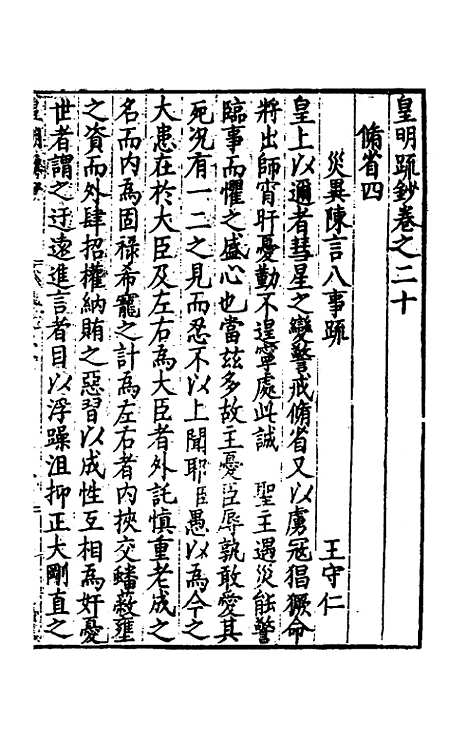 皇明疏鈔卷之二十
脩省四
災異陳言八事疏
王守仁
皇上以邇者彗星之變警戒脩省又以虜寇猖獗命
將出師宵旰憂勤不遑寧處此誠 聖主遇災能警
臨事而懼之盛心也當兹多故主憂臣辱孰敢愛其
死況有一二之見而忍不以上聞耶臣愚以為今之
大患在於大臣及左右為大臣者外託慎重老成之
名而内為固祿希寵之計為左右者内挾交蟠蔽壅
之資而外肆招權納賄之惡習以成性互相為奸憂
世者謂之迂遠進言者目以浮躁沮抑正大剛直之
皇明疏鈔